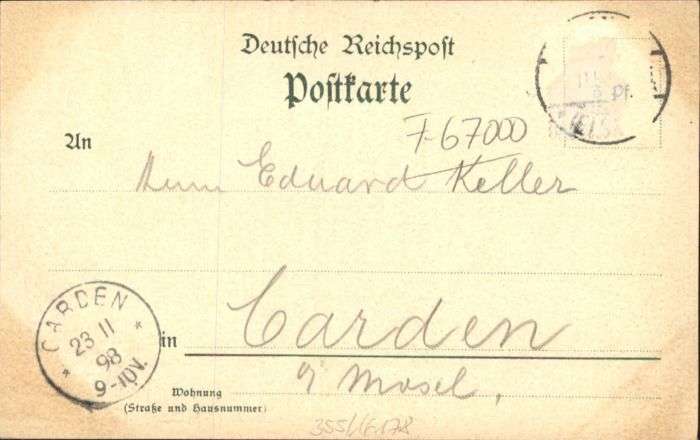 Deutsche Reichspost
Postkarte
5 Pf.
7-67000
An
Herrn Eduard Keller
CARDEN
23 11
98
9-10V.
in Carden
a/ Mosel,
Wohnung
(Straße und Hausnummer)